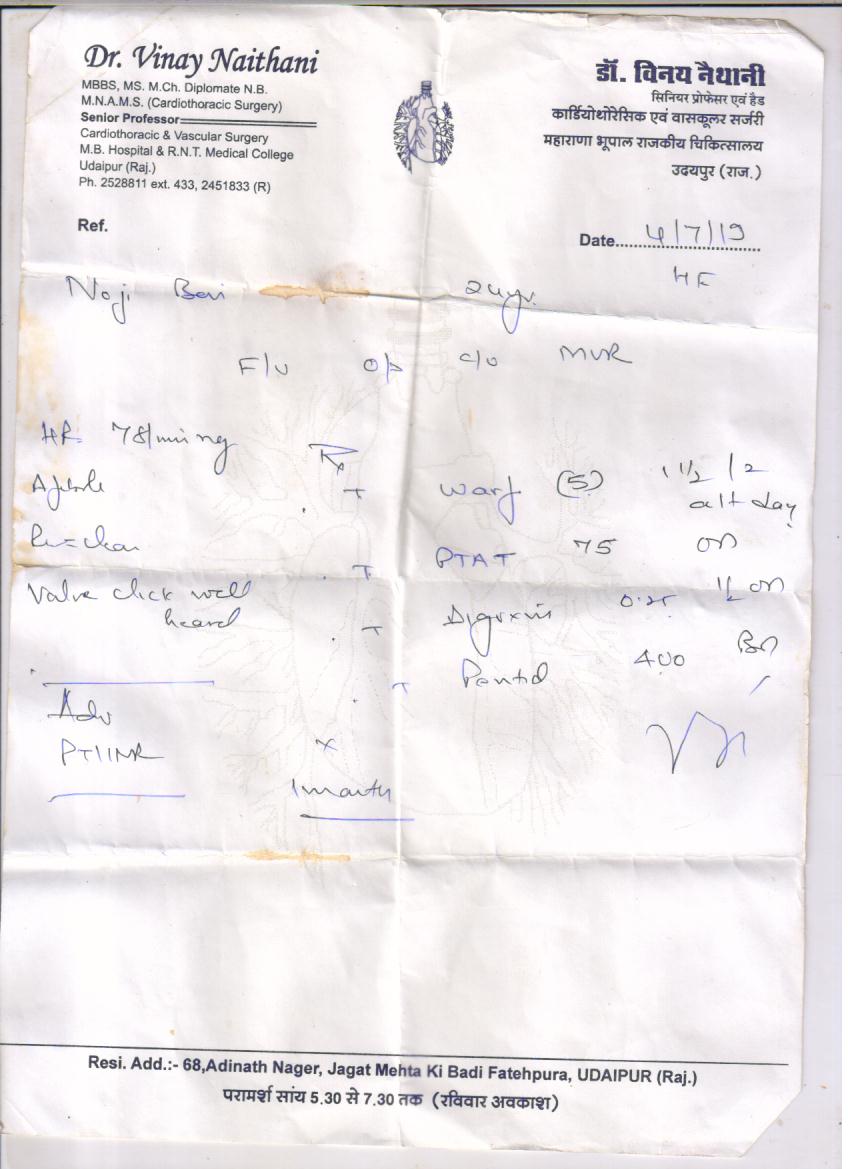 Dr. Vinay Naithani
MBBS, MS. M.Ch. Diplomate N.B.
M.N.A.M.S. (Cardiothoracic Surgery)
Senior Professor
Cardiothoracic & Vascular Surgery
M.B. Hospital & R.N.T. Medical College
Udaipur (Raj.)
Ph. 2528811 ext. 433, 2451833 (R)
डॉ. विनय नैथानी
सिनियर प्रोफेसर एवं हैड
कार्डियोथोरेसिक एवं वासकूलर सर्जरी
महाराणा भूपाल राजकीय चिकित्सालय
उदयपुर (राज.)
Ref.
Date 4/7/19
HF
Noji Bai 24yr.
F/U C/O MVR
HR 78/min
Rx
T Warf (5) 1 1/2 / 2
alt day
T 75 OD
Valve click well
heard
T Digoxin 0.25 1/2 OD
T Pentid 400 BD
Adv
PT/INR
x
1 month
Resi. Add.:- 68,Adinath Nager, Jagat Mehta Ki Badi Fatehpura, UDAIPUR (Raj.)
परामर्श सांय 5.30 से 7.30 तक (रविवार अवकाश)